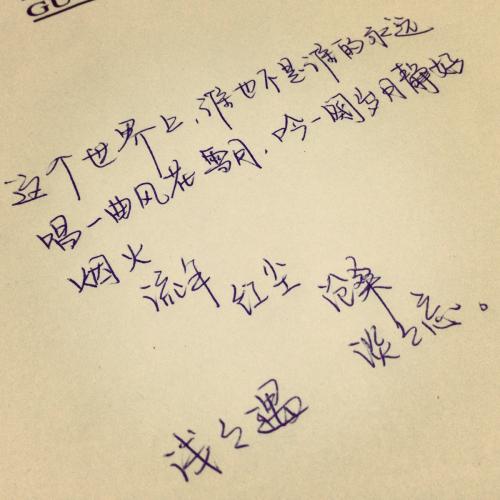 GU
这个世界上，谁也不是谁的永远
唱一曲风花雪月，吟一阕岁月静好
烟火 流年 红尘 沧桑
浅々遇 淡々忘。